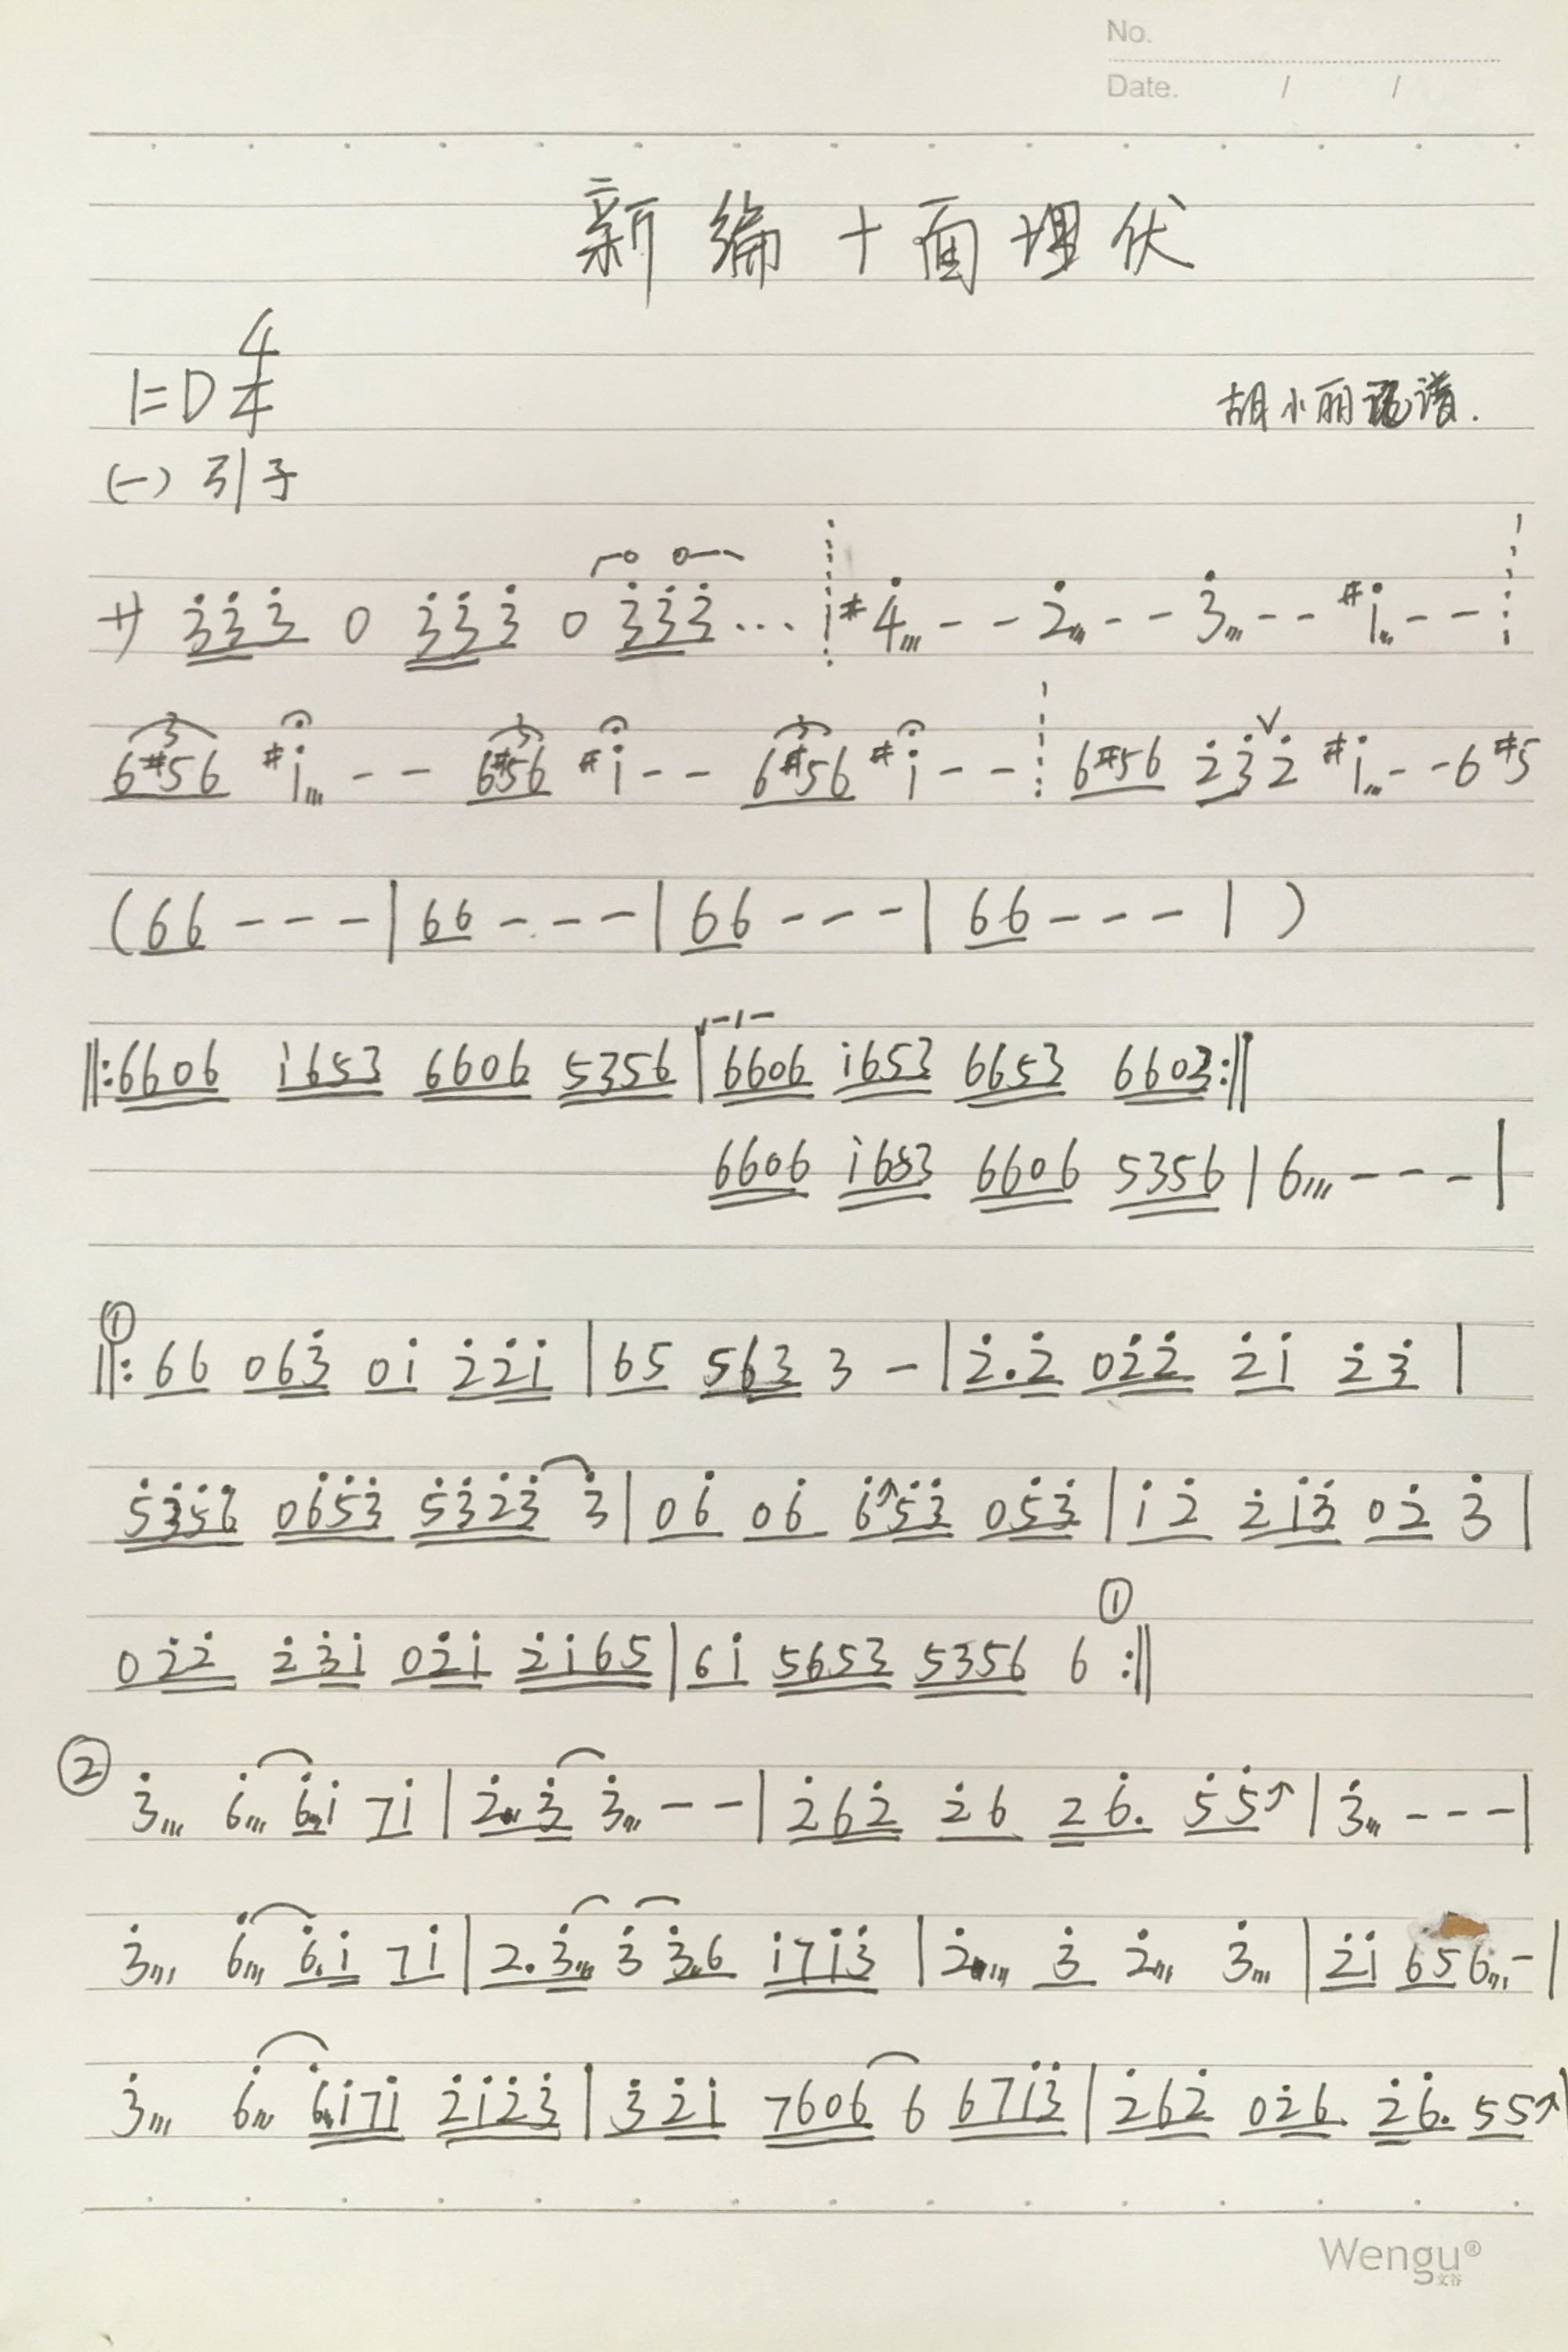 No.
Date. / /
新编十面埋伏
1=D 4/4
胡小丽记谱.
(一) 引子
サ 3̇3̇3̇ 0 3̇3̇3̇ 0 3̇3̇3̇... | #4̇,,, - - 2̇,,, - - 3̇,,, - - #1̇,,, - -
6#56 #1̇,,, - - 6#56 #1̇ - - 6#56 #1̇ - - 6#56 2̇3̇2̇ #1̇,,, - - 6 #5
(66 - - - | 66 - - - | 66 - - - | 66 - - - | )
‖:6606 1̇653 6606 5356 | 6606 1̇653 6653 6603:‖
6606 1̇653 6606 5356 | 6,,, - - - |
①
‖: 66 063̇ 01̇ 2̇2̇1̇ | 65 563 3 - | 2̇.2̇ 02̇2̇ 2̇1̇ 2̇3̇ |
5̇3̇5̇6̇ 06̇5̇3̇ 5̇3̇2̇3̇ 3̇ | 06̇ 06̇ 6̇↗5̇3̇ 05̇3̇ | 1̇2̇ 2̇1̇3̇ 02̇ 3̇ |
①
02̇2̇ 2̇3̇1̇ 02̇1̇ 2̇1̇65 | 61̇ 5653 5356 6 :‖
② 3̇,,, 6̇,,, 6̇.1̇ 71̇ | 2̇.3̇ 3̇,,, - - | 2̇62̇ 2̇6 26̇. 5̇5̇↗ | 3̇,,, - - - |
3̇,,, 6̇,,, 6̇.1̇ 71̇ | 2.3̇,,, 3̇ 3̇.6 1̇71̇3̇ | 2̇,,, 3̇ 2̇,,, 3̇,,, | 2̇1̇ 656,,, - |
3̇,,, 6̇,,, 6̇.1̇71̇ 2̇1̇2̇3̇ | 3̇2̇1̇ 7606 6 671̇3̇ | 2̇62̇ 02̇6. 2̇6̇. 55↗
Wengu®
文谷